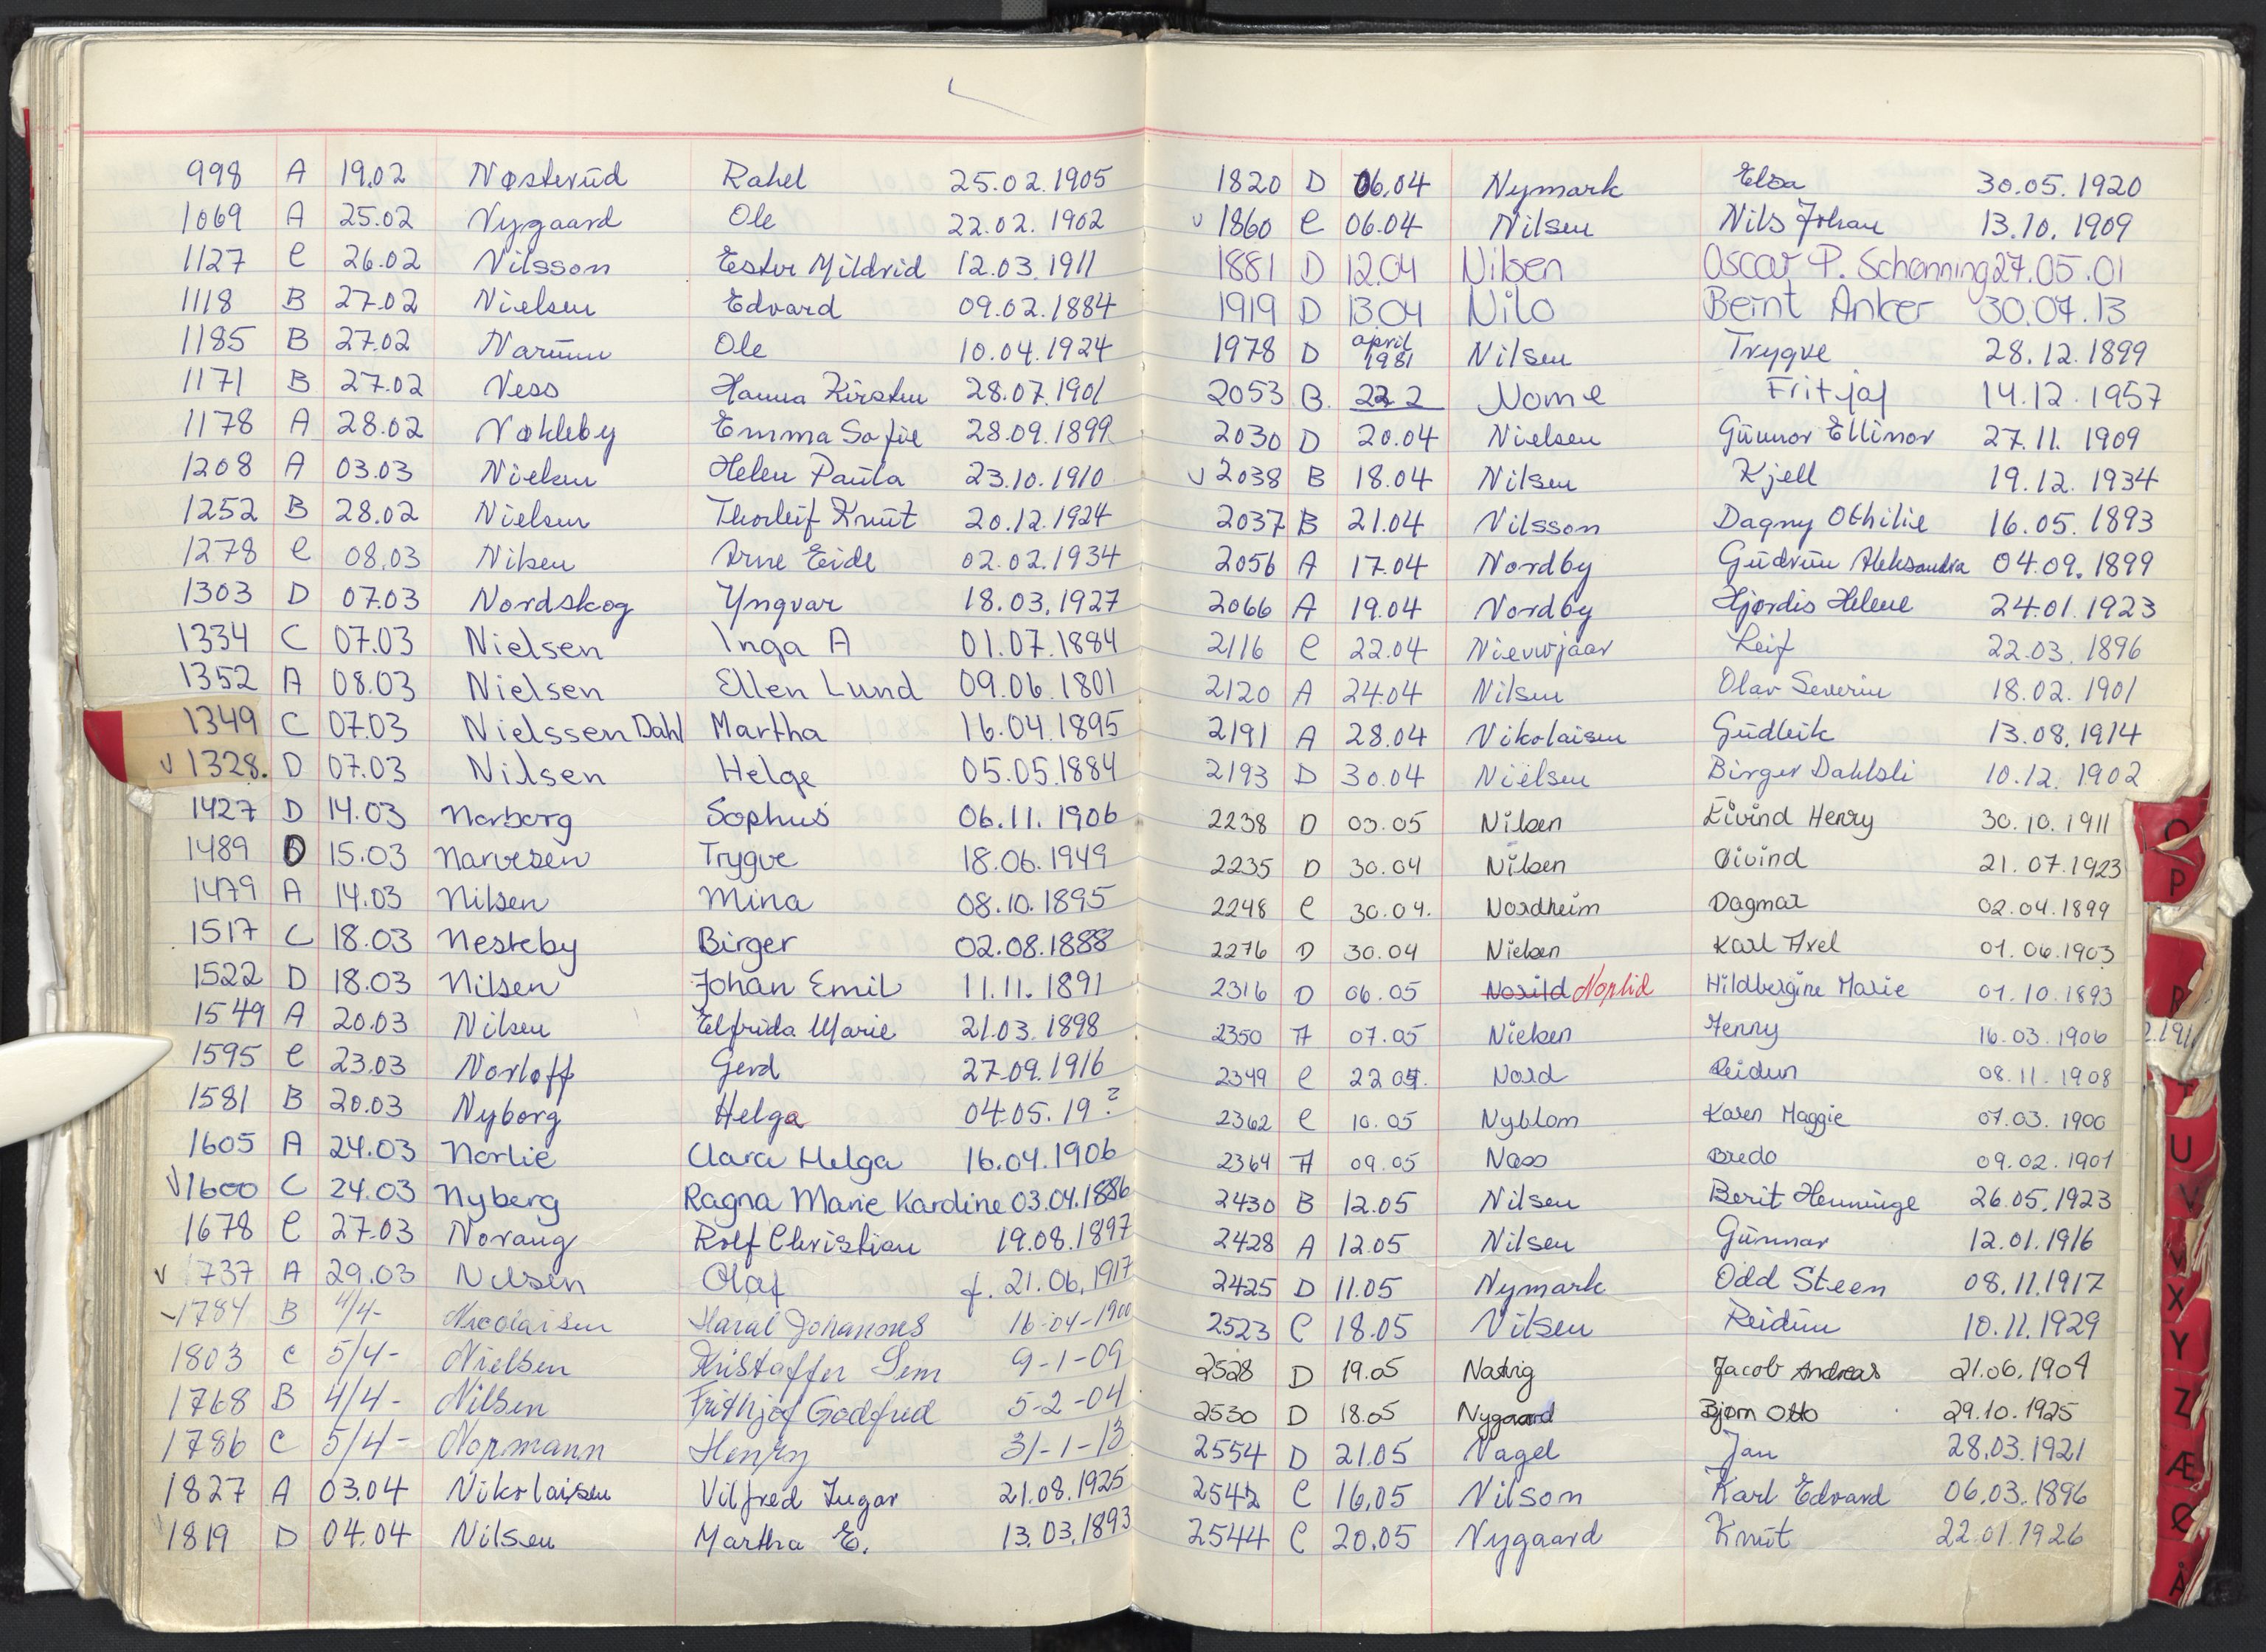 998 A 19.02 Nøsterud Rahel 25.02.1905
1069 A 25.02 Nygaard Ole 22.02.1902
1127 C 26.02 Nilsson Ester Mildrid 12.03.1911
1118 B 27.02 Nielsen Edvard 09.02.1884
1185 B 27.02 Narum Ole 10.04.1924
1171 B 27.02 Ness Hanna Kirsten 28.07.1901
1178 A 28.02 Nøkleby Emma Sofie 28.09.1899
1208 A 03.03 Nielsen Helen Paula 23.10.1910
1252 B 28.02 Nielsen Thorleif Knut 20.12.1924
1278 C 08.03 Nilsen Arne Eide 02.02.1934
1303 D 07.03 Nordskog Yngvar 18.03.1927
1334 C 07.03 Nielsen Inga A 01.07.1884
1352 A 08.03 Nielsen Ellen Lund 09.06.1801
1349 C 07.03 Nielssen Dahl Martha 16.04.1895
v 1328. D 07.03 Nilsen Helge 05.05.1884
1427 D 14.03 Norborg Sophus 06.11.1906
1489 D 15.03 Narvesen Trygve 18.06.1949
1479 A 14.03 Nilsen Mina 08.10.1895
1517 C 18.03 Nesteby Birger 02.08.1888
1522 D 18.03 Nilsen Johan Emil 11.11.1891
1549 A 20.03 Nilsen Elfrida Marie 21.03.1898
1595 C 23.03 Norloff Gerd 27.09.1916
1581 B 20.03 Nyborg Helga 04.05.19?
1605 A 24.03 Norlie Clara Helga 16.04.1906
v 1600 C 24.03 Nyberg Ragna Marie Kardine 03.04.1886
1678 C 27.03 Norang Rolf Christian 19.08.1897
v 1737 A 29.03 Nilsen Olaf f. 21.06.1917
1784 B 4/4- Nicolaisen Haral Johannes 16-04-1900
1803 C 5/4- Nielsen Kristoffer Sem 9-1-09
1768 B 4/4- Nilsen Frithjof Godfred 5-2-04
1786 C 5/4- Normann Henry 31-1-13
1827 A 03.04 Nikolaisen Vilfred Ingar 21.08.1925
1819 D 04.04 Nilsen Martha E. 13.03.1893
1820 D 06.04 Nymark Elsa 30.05.1920
v 1860 C 06.04 Nilsen Nils Johan 13.10.1909
1881 D 12.04 Nilsen Oscar P. Schønning 27.05.01
1919 D 13.04 Nilo Beint Anker 30.07.13
1978 D april 1981 Nilsen Trygve 28.12.1899
2053 B. 22 2 Nome Fritjof 14.12.1957
2030 D 20.04 Nielsen Gunnor Ellinor 27.11.1909
v 2038 B 18.04 Nilsen Kjell 19.12.1934
2037 B 21.04 Nilsson Dagny Othilie 16.05.1893
2056 A 17.04 Nordby Gudrun Aleksandra 04.09.1899
2066 A 19.04 Nordby Hjørdis Helene 24.01.1923
2116 C 22.04 Nieuwjaar Leif 22.03.1896
2120 A 24.04 Nilsen Olav Severin 18.02.1901
2191 A 28.04 Nikolaisen Gudleik 13.08.1914
2193 D 30.04 Nielsen Birger Dahlsli 10.12.1902
2238 D 03.05 Nilsen Eivind Henry 30.10.1911
2235 D 30.04 Nilsen Øivind 21.07.1923
2248 C 30.04. Nordheim Dagmar 02.04.1899
2276 D 30.04 Nielsen Karl Axel 01.06.1903
2316 D 06.05 Norild Noplid Hildbergine Marie 01.10.1893
2350 A 07.05 Nielsen Henny 16.03.1906
2349 C 22.05. Nord Reidun 08.11.1908
2362 C 10.05 Nyblom Karen Maggie 07.03.1900
2364 A 09.05 Næss Bredo 09.02.1901
2430 B 12.05 Nilsen Berit Henninge 26.05.1923
2428 A 12.05 Nilsen Gunnar 12.01.1916
2425 D 11.05 Nymark Odd Steen 08.11.1917
2523 C 18.05 Nilsen Reidun 10.11.1929
2528 D 19.05 Natvig Jacob Andreas 21.06.1904
2530 D 18.05 Nygaard Bjørn Otto 29.10.1925
2554 D 21.05 Nagel Jan 28.03.1921
2542 C 16.05 Nilson Karl Edvard 06.03.1896
2544 C 20.05 Nygaard Knut 22.01.1926
O
P
R
U
V
X
Y
Z
Æ
Ø
Å